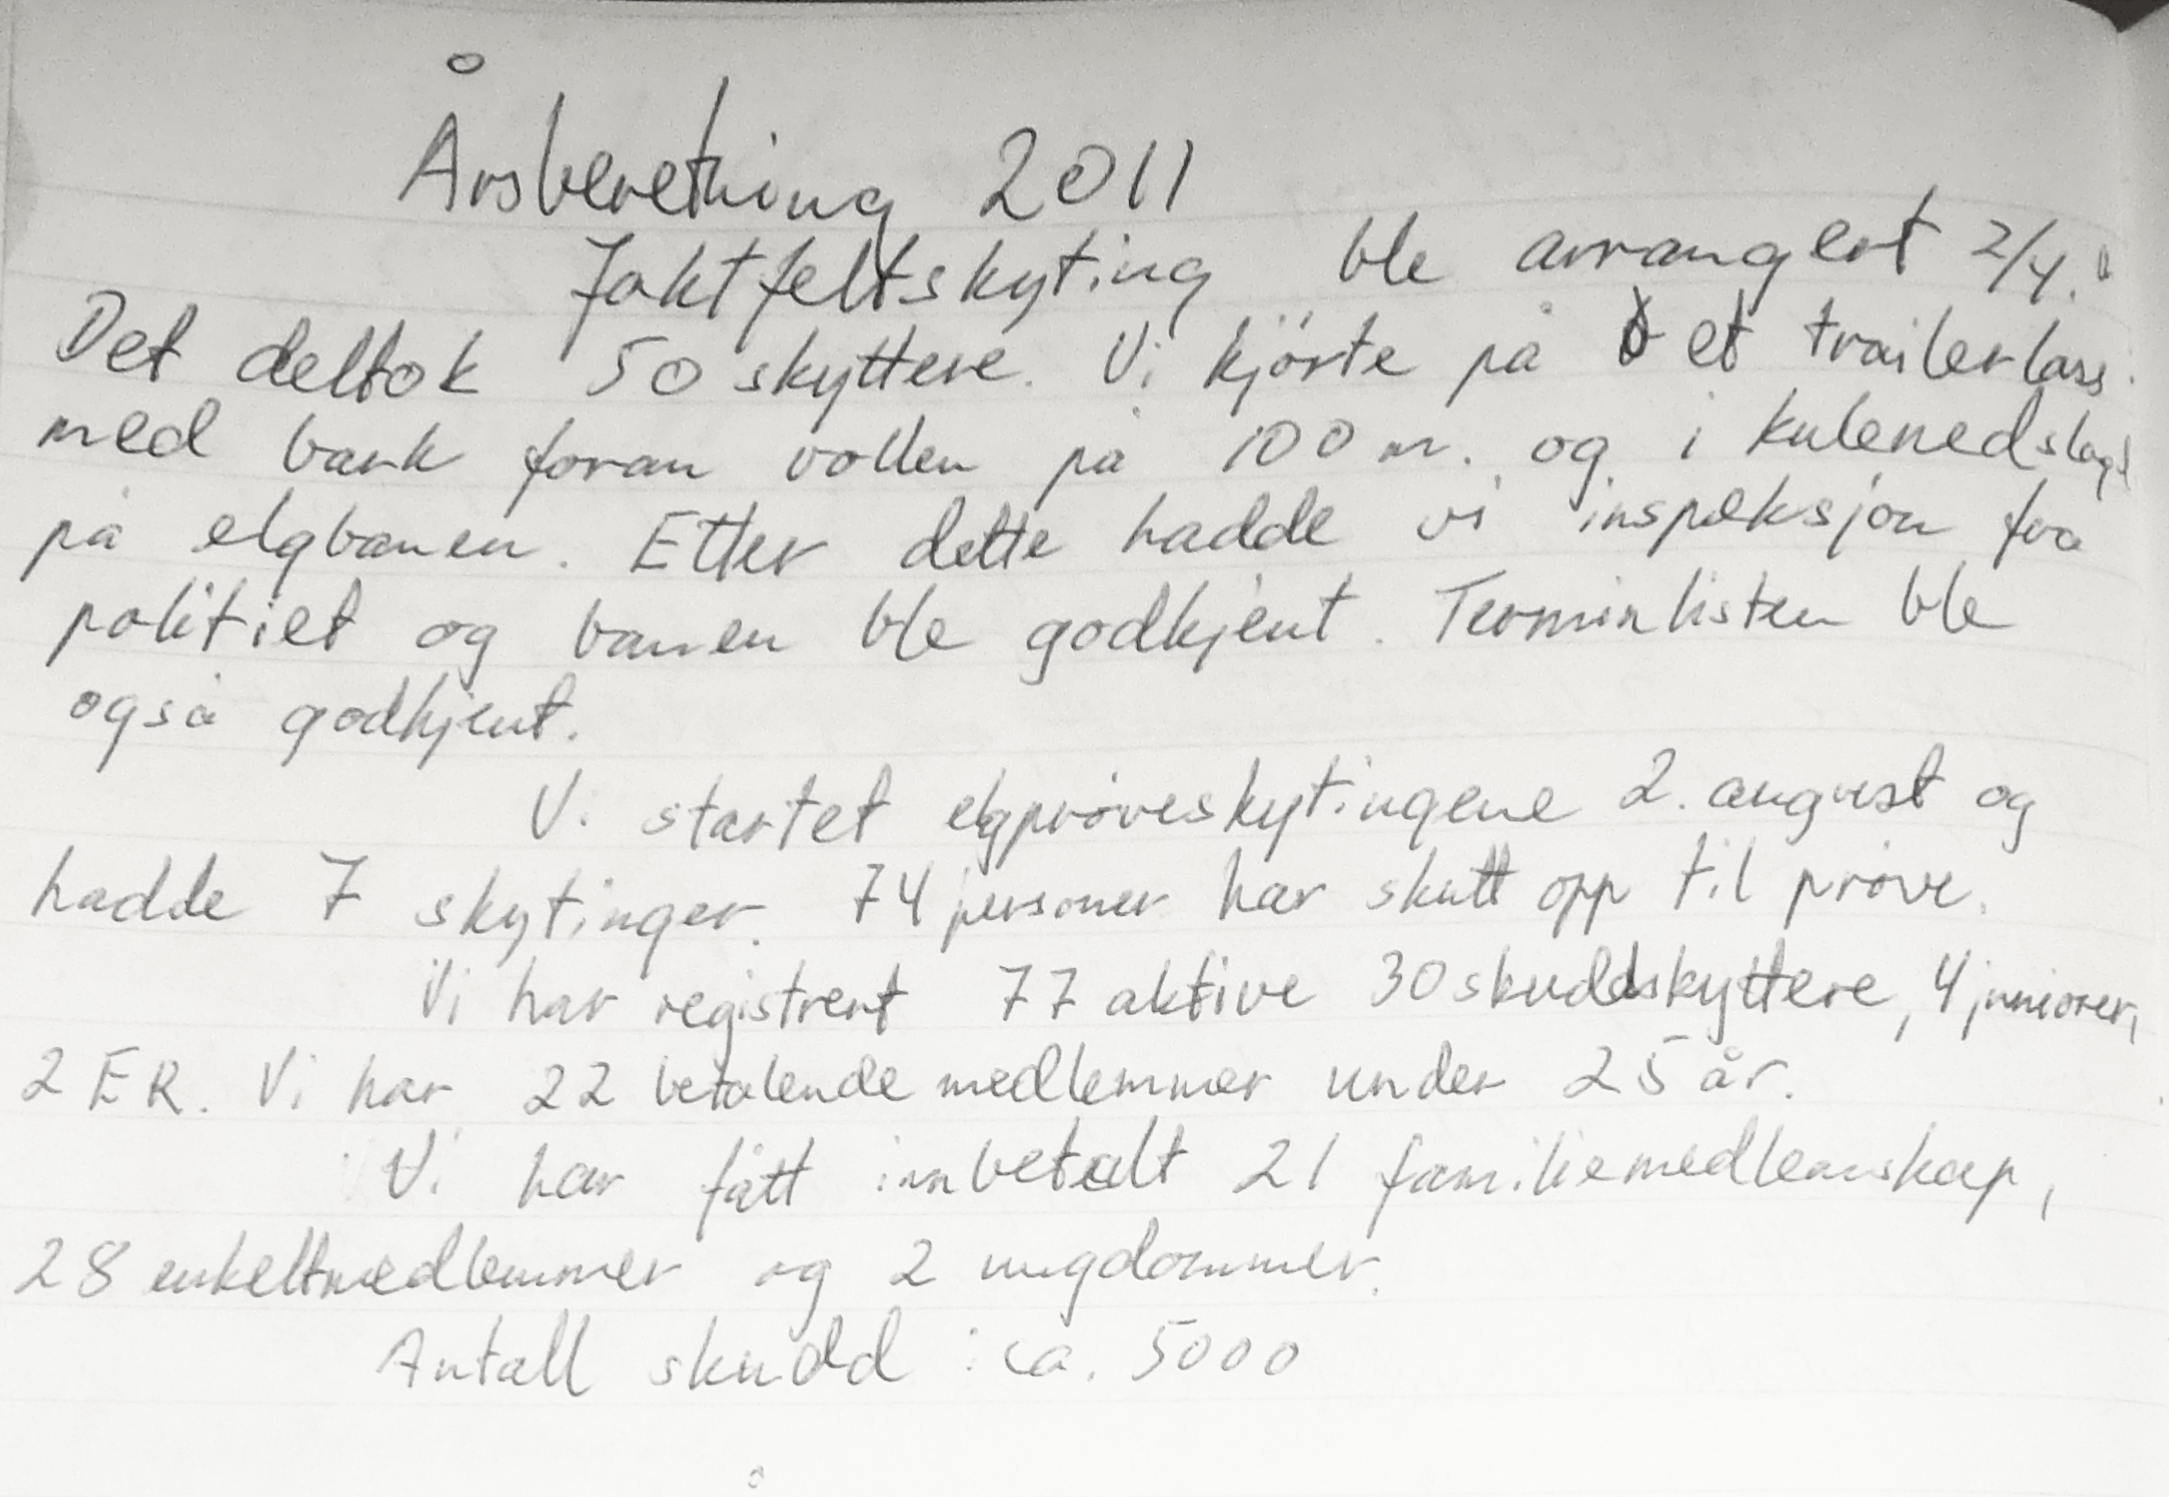 Årsberetning 2011
Jaktfeltskyting ble arrangert 2/4.
Det deltok 50 skyttere. Vi kjørte på et trailerlass
med bark foran vollen på 100 m. og i kulenedslaget
på elgbanen. Etter dette hadde vi inspeksjon fra
politiet og banen ble godkjent. Terminlisten ble
også godkjent.
Vi startet elgprøveskytingene 2. august og
hadde 7 skytinger. 74 personer har skutt opp til prøve.
Vi har registrert 77 aktive 30 skuddskyttere, 4 juniorer,
2 ER. Vi har 22 betalende medlemmer under 25 år.
Vi har fått innbetalt 21 familiemedlemskap,
28 enkeltmedlemmer og 2 ungdommer.
Antall skudd : ca. 5000